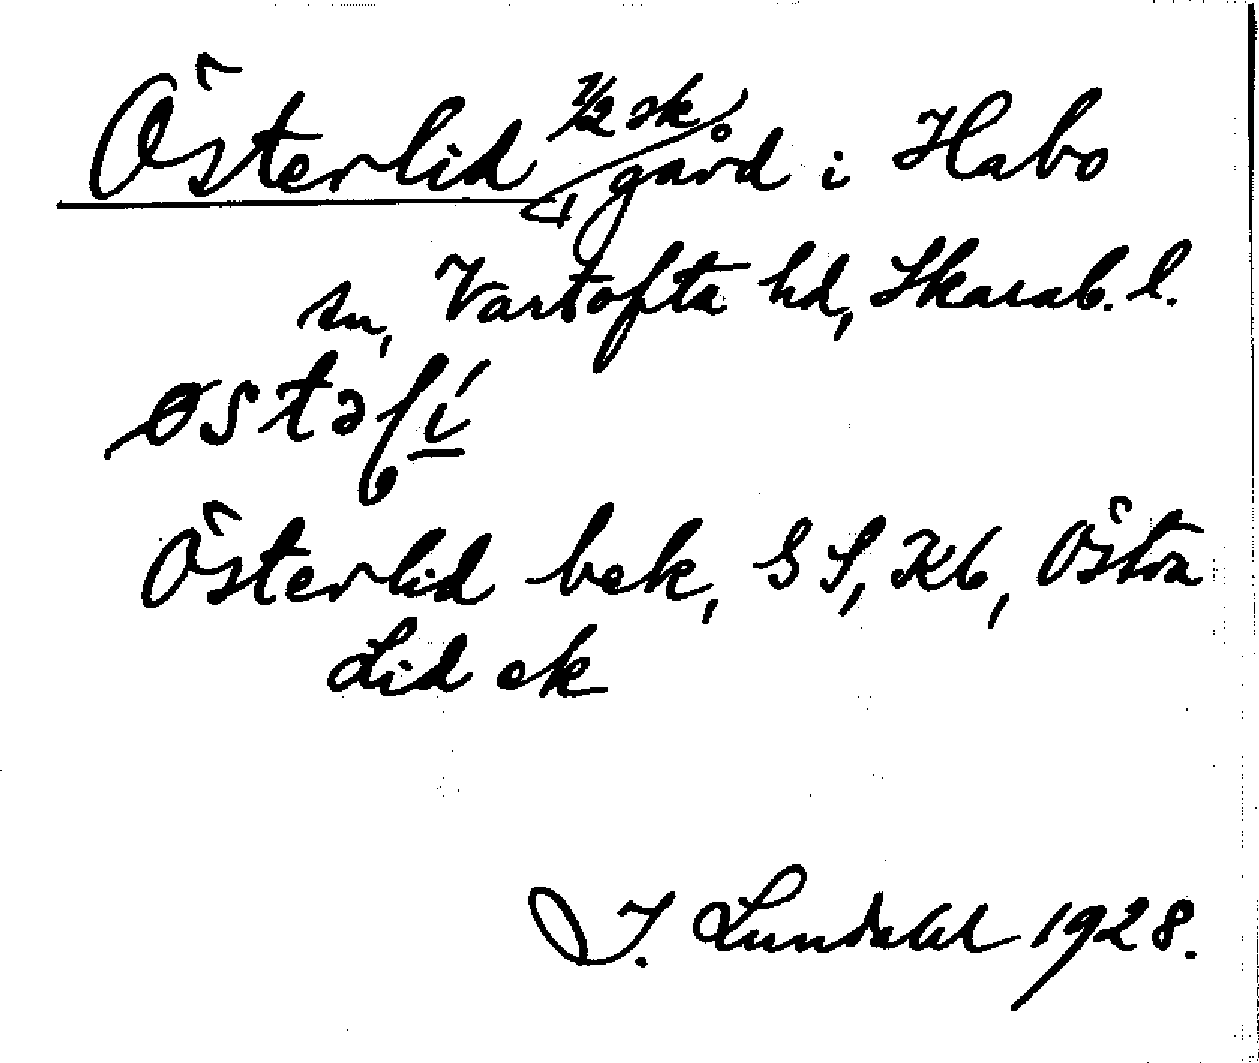 Österlid 1/2 sk. gård i Habo
sn, Vartofta hd, Skarab. l.
Österlid bek, GS, Kb, Östra
Lid ek
I. Lundahl 1928.